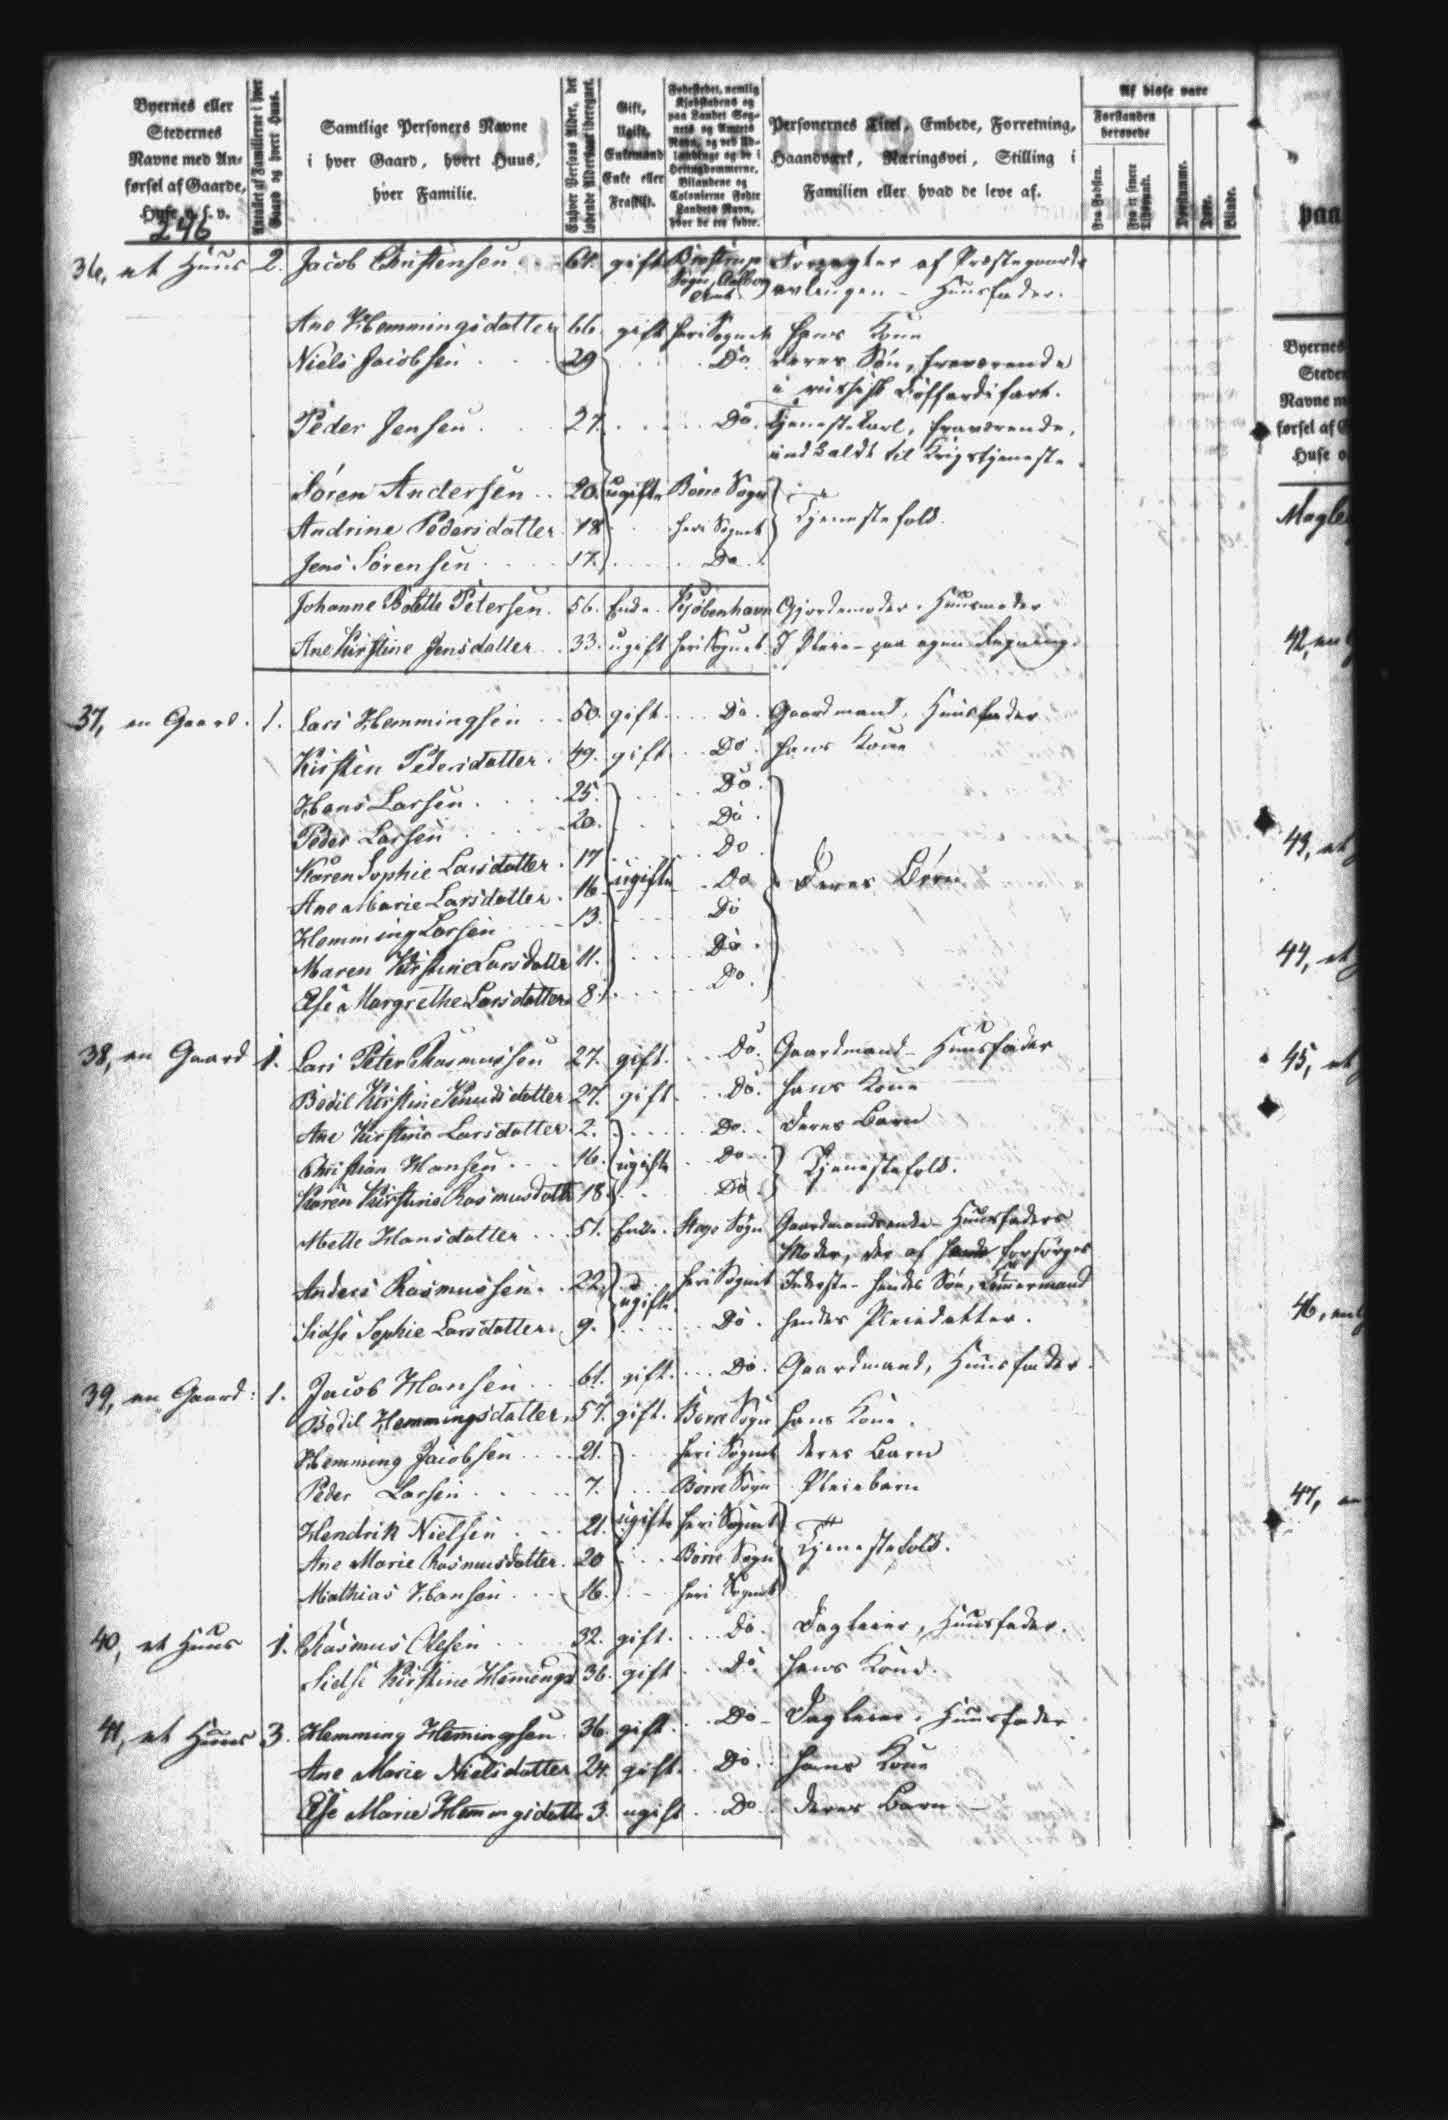 Byernes eller Stedernes Navne med Anførsel af Gaarde, Huse o. s. v.
Antallet af Familierne i hver Gaard og hvert Huus.
Samtlige Personers Navne i hver Gaard, hvert Huus, hver Familie.
Enhver Persons Alder, det løbende Aldersaar iberegnet.
Gift, Ugift, Enkemand Enke eller Fraskilt.
Fødestedet, nemlig Kjøbstadens og paa Landet Sognets og Amtets Navn, og ved Udlændinge og de i Hertugdømmerne, Bilandene og Colonierne Fødte Landets Navn, hvor de ere fødte.
Personernes Titel, Embede, Forretning, Haandværk, Næringsvei, Stilling i Familien eller hvad de leve af.
Af disse vare
Forstanden berøvede
Fra Fødslen.
Fra et senere Tidspunkt.
Døvstumme.
Døve.
Blinde.
246
36, et Huus 2. Jacob Christensen 61. gift Sogn, Aalborg Amt Forpagter af Præstegaards avlingen - Huusfader.
Ane Hemmingsdatter 66. gift her i Sognet hans Kone
Niels Jacobsen 29 Do. deres Søn, fraværende
i russisk Koffardifart.
Peder Jensen 27. Do. Tjenestekarl, fraværende,
indkaldt til Krigstjeneste.
Søren Andersen 20. ugifte Borre Sogn
Andrine Pedersdatter 18 her i Sognet Tjenestefolk.
Jens Sørensen 17. Do.
Johanne Bolette Petersen. 56. Enke. Kjøbenhavn Gjordemoder. Huusmoder
Ane Kirstine Jensdatter 33. ugift her i Sognet I Pleie paa egen Regning.
37, en Gaard. 1. Lars Hemmingsen 50. gift. Do. Gaardmand, Huusfader
Kirsten Pedersdatter. 49. gift. Do. hans Kone
Hans Larsen 25. Do.
Peder Larsen 20. Do.
Karen Sophie Larsdatter. 17 Do
Ane Marie Larsdatter. 16. ugifte Do deres Børn
Hemming Larsen 13. Do
Maren Kirstine Larsdatter 11. Do.
Else Margrethe Larsdatter 8. Do.
38, en Gaard 1. Lars Peter Rasmussen 27. gift. Do. Gaardmand - Huusfader
Bodil Kirstine Knudsdatter 27. gift. Do. hans Kone
Ane Kirstine Larsdatter 2. Do. deres Barn
Christian Hansen 16. ugifte Do Tjenestefolk.
Karen Kirstine Rasmusdatter 18. Do.
Mette Hansdatter 51. Enke. Stege Sogn Gaardmandsenke Huusfaders
Moder, der af ham forsørges
Anders Rasmussen. 22 ugifte her i Sognet Inderste - hendes Søn, Tømmermand
Sidse Sophie Larsdatter. 9. Do. hendes Pleiedatter.
39, en Gaard: 1. Jacob Hansen 61. gift. Do. Gaardmand, Huusfader.
Bodil Hemmingsdatter 57. gift. Borre Sogn hans Kone.
Hemming Jacobsen 21. her i Sognet deres Barn
Peder Larsen 7. Borre Sogn Pleiebarn
Hendrik Nielsen 21. ugifte her i Sognet
Ane Marie Rasmusdatter. 20 Borre Sogn Tjenestefolk.
Mathias Hansen 16. her i Sognet
40, et Huus 1. Rasmus Olesen 32. gift. Do. Dagleier, Huusfader.
Sidse Kirstine Hemingsd 36. gift Do. hans Kone.
41, et Huus 3. Hemming Hemingsen 36. gift. Do Dagleier, Huusfader
Ane Marie Nielsdatter 24. gift. Do. hans Kone
Else Marie Hemingsdatter 3. ugift Do deres Barn
paa
Byernes
Steder
Navne m
førsel af G
Huse o
Magle
42, en
43, et
44, et
45, et
46, en
47, en